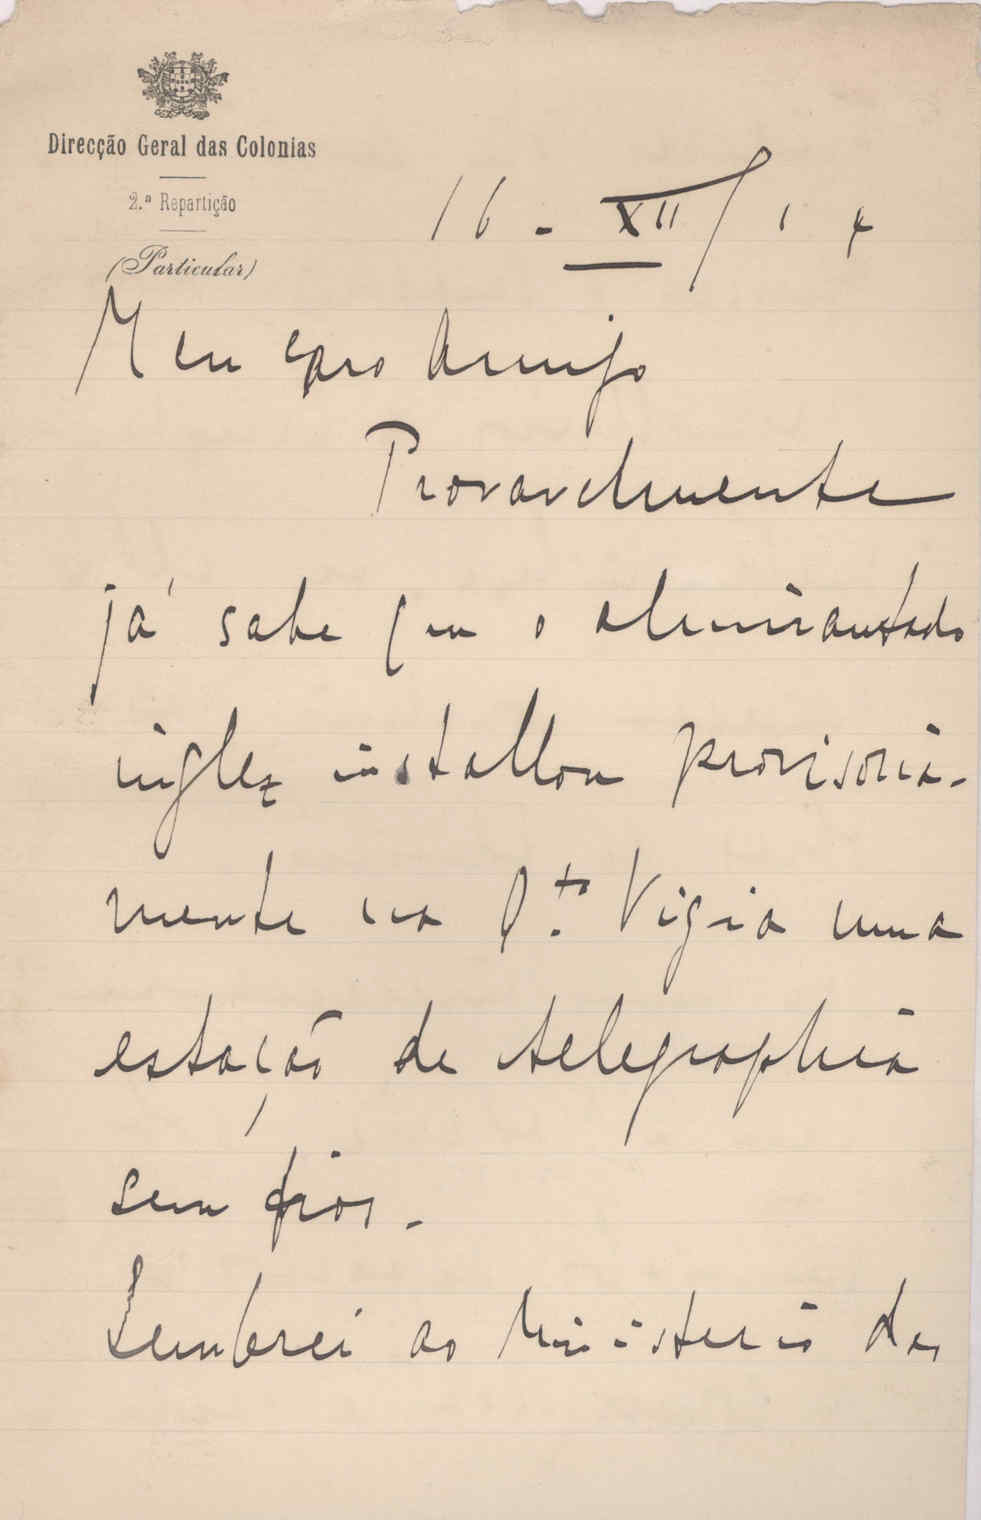 Direcção Geral das Colonias
2.ª Repartição
(Particular)
16 - XII / 14
Meu caro Amigo
Provavelmente
já sabe que o almirantado
inglez installou provisoria-
mente na Q.ta Vigia uma
estação de telegraphia
sem fios.
Lembrei ao Ministerio dos